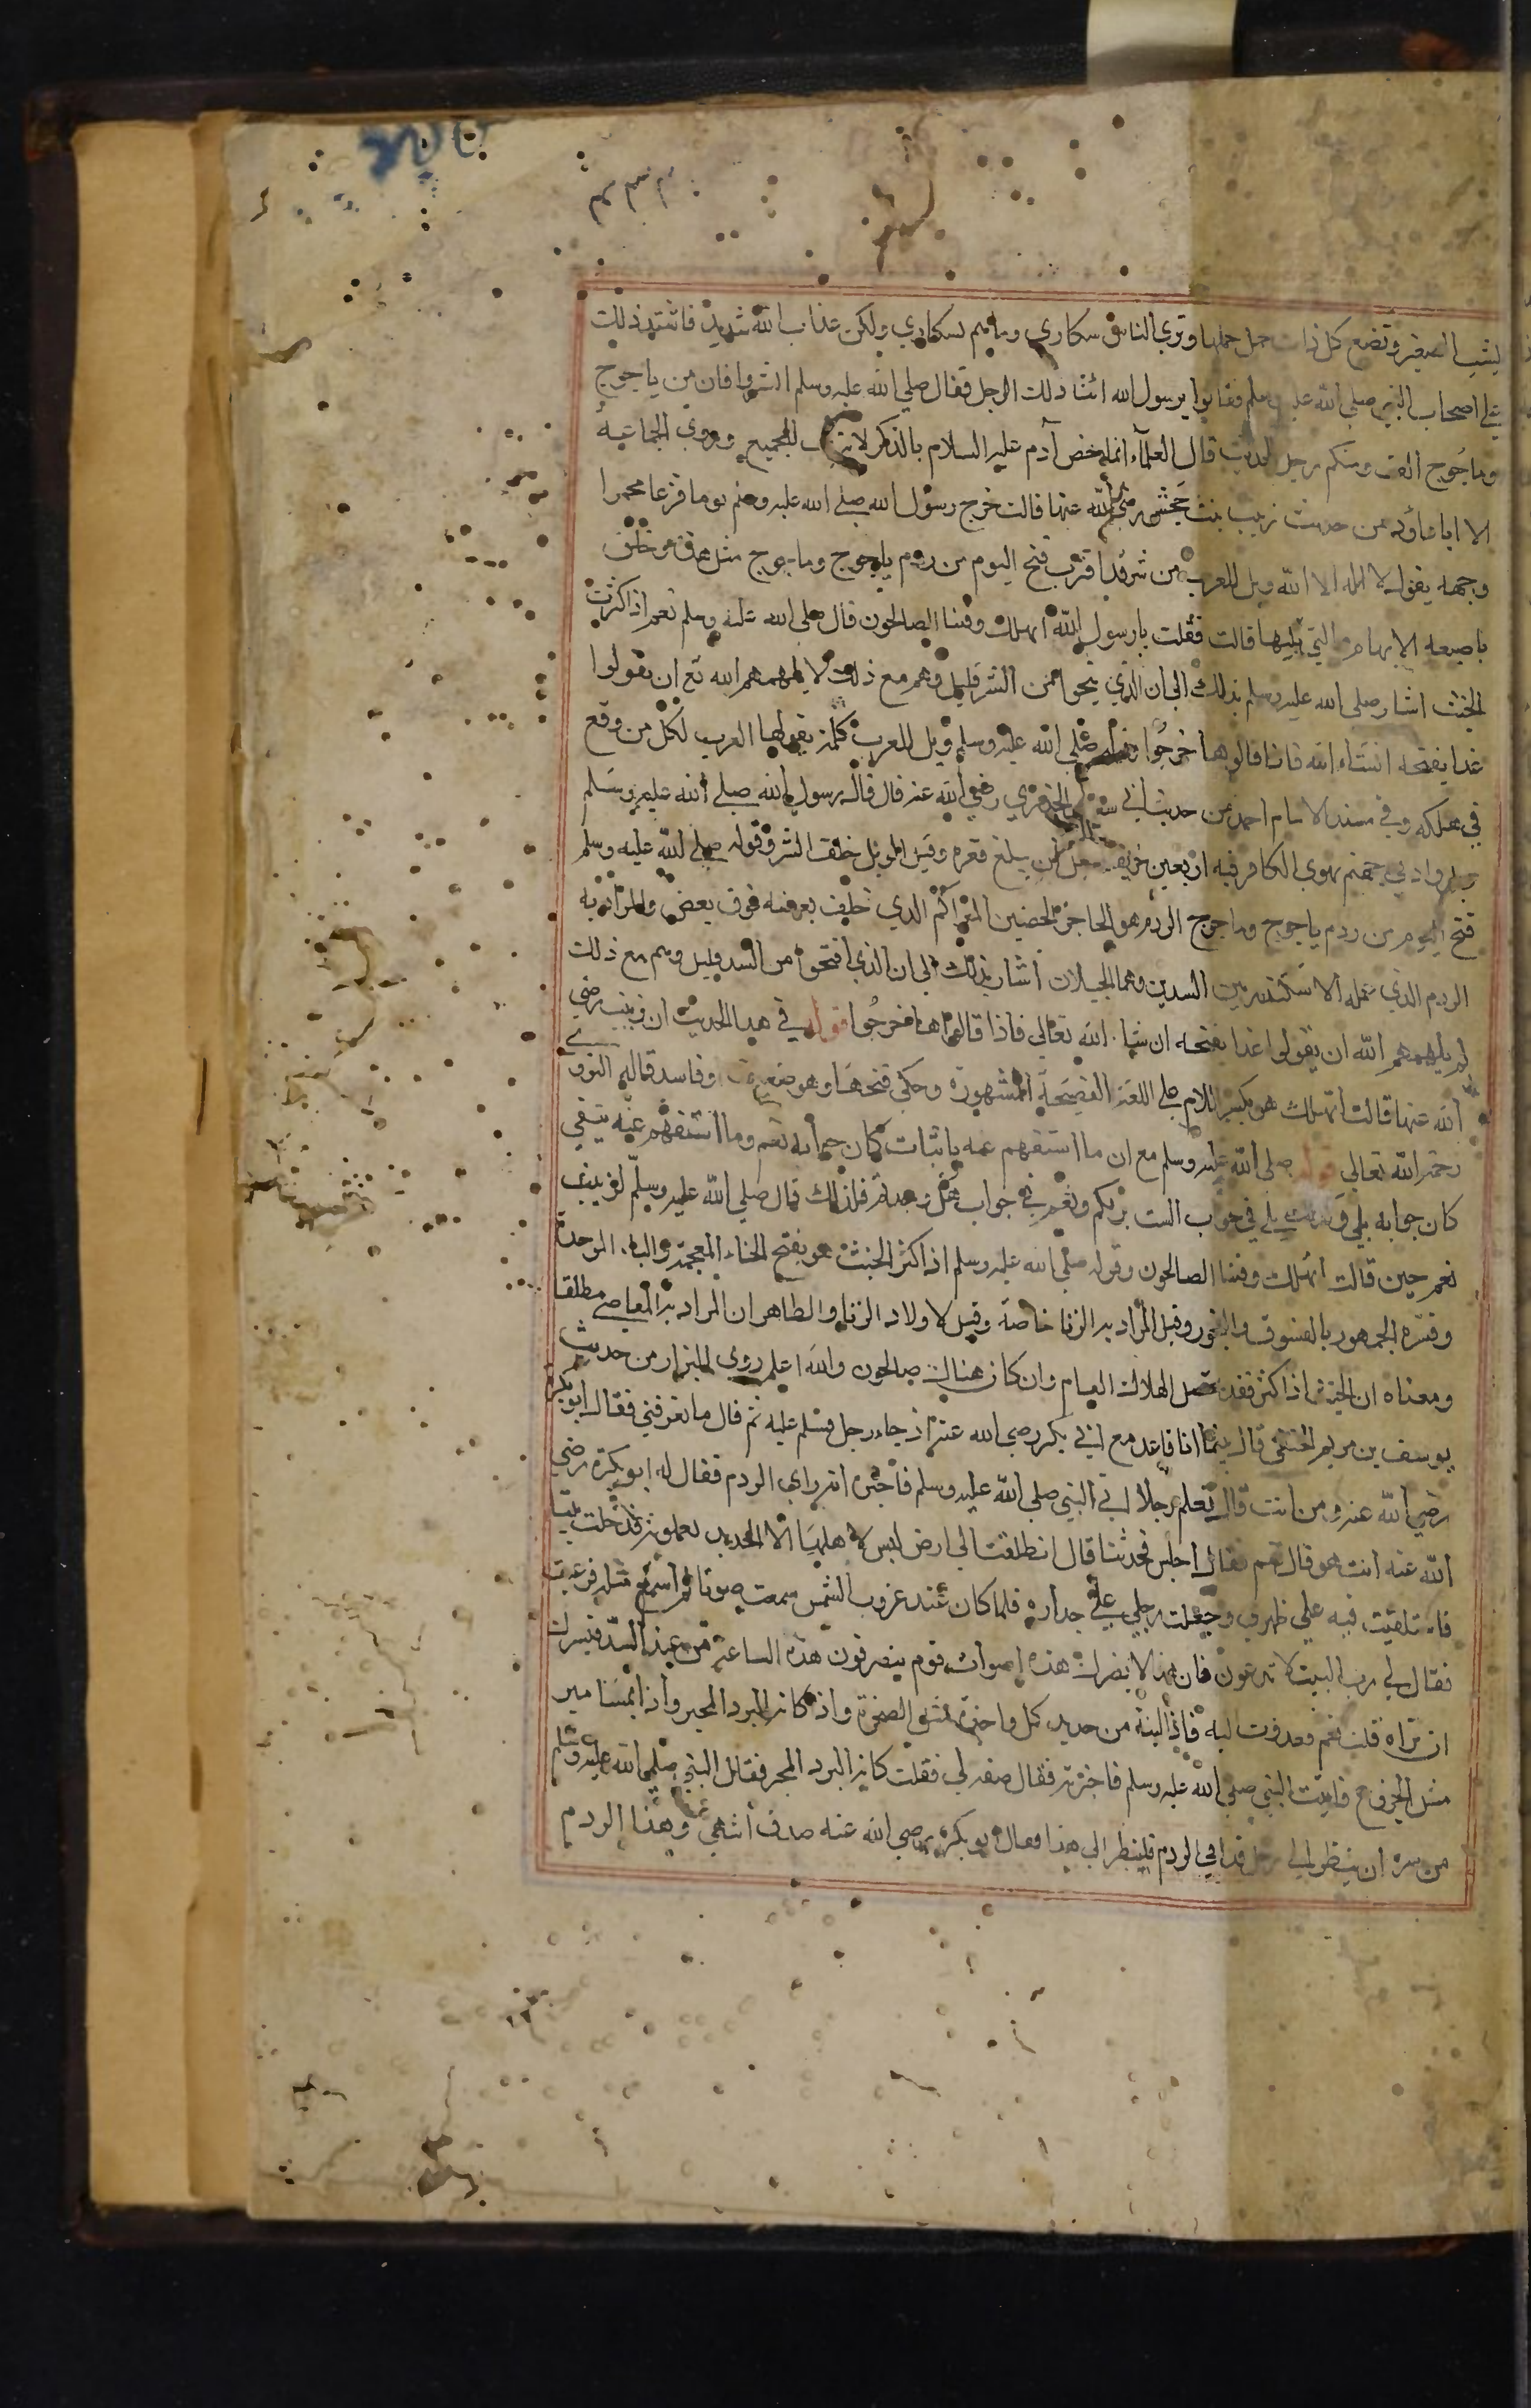 يشيب الصغير وتضع كل ذات حمل حملها وترى الناس سكارى وما هم بسكارى ولكن عذاب الله شديد فاشتد ذلك
على اصحاب النبي صلى الله عليه وسلم فقالوا يرسول الله اينا ذلك الرجل فقال صلى الله عليه وسلم ابشروا فان من ياجوج
وماجوج الف ومنكم رجل الحديث قال العلماء انما خص آدم عليه السلام بالذكر لانه اب للجميع وروى الجماعة
الا ابا داود من حديث زينب بنت جحش رضي الله عنها قالت خرج رسول الله صلى الله عليه وسلم يوما فزعا محمرا
وجهه يقول لا اله الا الله ويل للعرب من شر قد اقترب فتح اليوم من ردم ياجوج وماجوج مثل هذه وحلق
باصبعه الابهام والتي تليها قالت فقلت يارسول الله انهلك وفينا الصالحون قال صلى الله عليه وسلم نعم اذا كثرت
الخبث اشار صلى الله عليه وسلم بذلك الى ان الذي فتحوا من السد قليل وهم مع ذلك لا يلهمهم الله تع ان يقولوا
غدا يفتحه انشاء الله فاذا قالوها خرجوا صلى الله عليه وسلم ويل للعرب كلمة تقولها العرب لكل من وقع
في هلكه وفي مسند الامام احمد من حديث ابي سعيد الخدري رضي الله عنه قال قال رسول الله صلى الله عليه وسلم
ويل واد في جهنم يهوى الكافر فيه اربعين خريفا قبل ان يبلغ قعره وقيل الويل خلق الشر وقوله صلى الله عليه وسلم
فتح اليوم من ردم ياجوج وماجوج الردم هو الحاجز الحصين المتراكم الذي خلف بعضه فوق بعض والمراد به
الردم الذي عمله الاسكندر بين السدين وهما الجبلان اشار بذلك الى ان الذي افتحوا من السد قليل وهم مع ذلك
لم يلهمهم الله ان يقولوا غدا نفتحه ان شا الله تعالى فاذا قالوها خرجوا قوله في هذا الحديث ان زينب رضي
الله عنها قالت انهلك هو بكسر اللام على اللغة الفصيحة المشهورة وحكى فتحها وهو ضعيف وفاسد قاله النووي
رحمه الله تعالى قوله صلى الله عليه وسلم مع ان ما استفهم عنه باثبات كان جوابه نعم وما استفهم عنه بنفي
كان جوابه بلى في جواب الست بربكم ونعم في جواب هل وجدتم فلذلك قال صلى الله عليه وسلم لزينب
نعم حين قالت انهلك وفينا الصالحون وقوله صلى الله عليه وسلم اذا كثر الخبث هو بفتح الخاء المعجمة والباء الموحدة
وفسره الجمهور بالفسوق والفجور وقيل المراد به الزنا خاصة وقيل لاولاد الزنا والظاهر ان المراد به المعاصي مطلقا
ومعناه ان الخبث اذا كثر فقد حصل الهلاك العام وان كان هناك صالحون والله اعلم روى البزار من حديث
يوسف بن مريم الحنفي قال بينما انا قاعد مع ابي بكرة رضي الله عنه اذ جاء رجل فسلم عليه ثم قال ما تعرفني فقال ابو بكرة
رضي الله عنه ومن انت قال تعلم رجلا اتى النبي صلى الله عليه وسلم فاخبره انه راى الردم فقال له ابو بكرة رضي
الله عنه انت هو قال نعم فقال اجلس فحدثنا قال انطلقت الى ارض ليس لاهلها الا الحديد يعملونه فدخلت بيتا
فاستلقيت فيه على ظهري وجعلت رجلي على جداره فلما كان عند غروب الشمس سمعت صوتا لم اسمع مثله فرعبت
فقال لي رب البيت لا تدعون فان هذا لا يضرك هذه اصوات قوم ينصرفون هذه الساعة من عند السد فيسرك
ان تراه قلت نعم فغدوت اليه فاذا لبنه من حديد كل واحدة مثل الصخرة واذا كانه البرد المحبر واذا مسامير
مثل الجذوع فاتيت النبي صلى الله عليه وسلم فاخبرته فقال صفه لي فقلت كانه البرد المحبر فقال النبي صلى الله عليه وسلم
من سره ان ينظر الى رجل قد اتى الردم فلينظر الى هذا فقال ابو بكرة رضي الله عنه صدق انتهى وهذا الردم